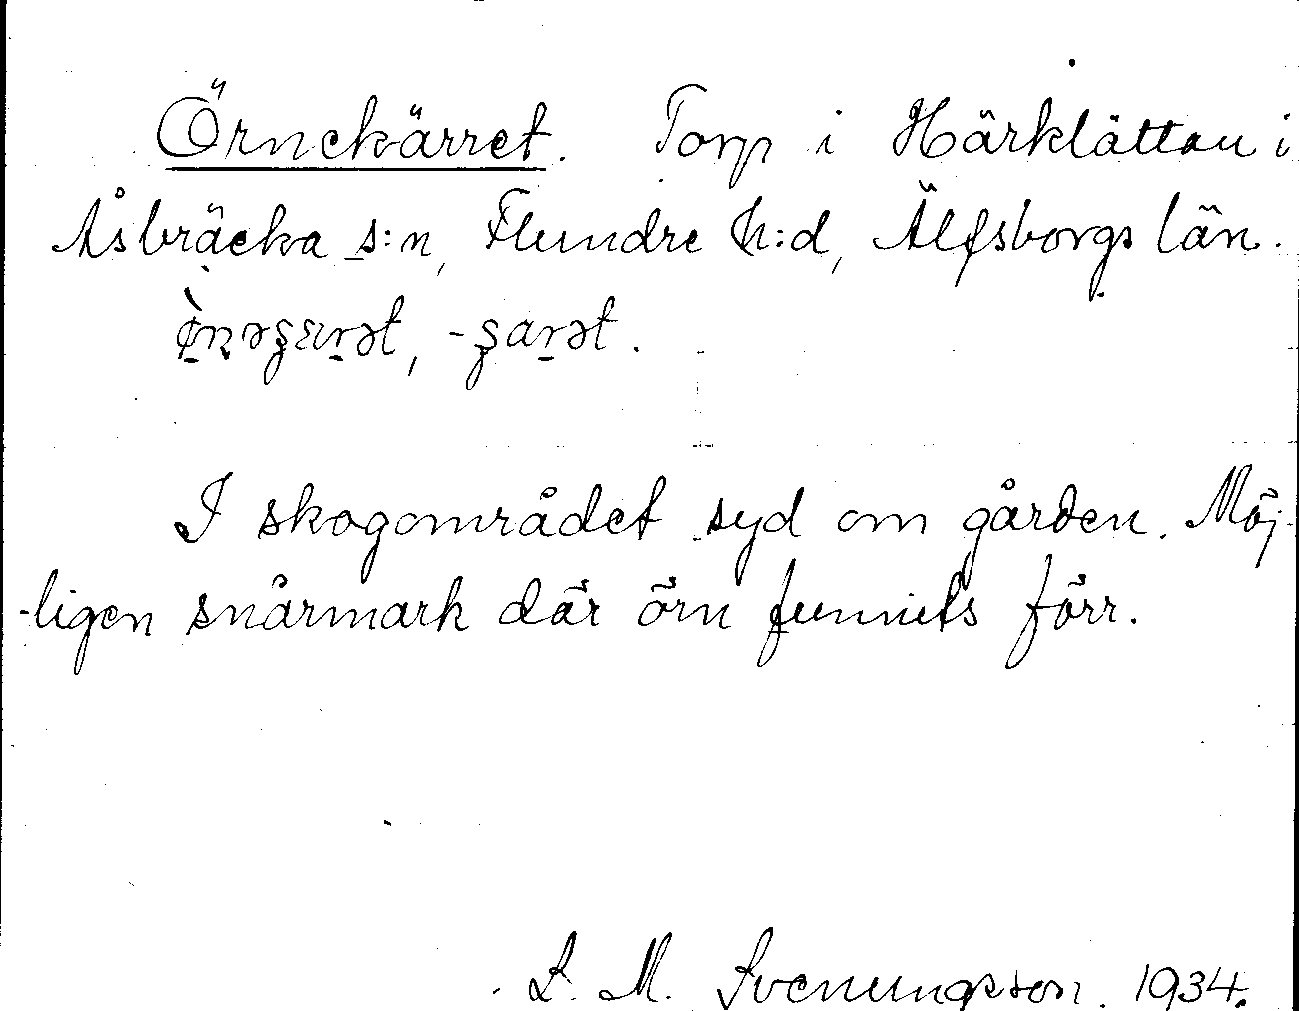 Örnekärret. Torp i Härklättan i
Åsbräcka s:n, Flundre h:d, Älfsborgs län.
I skogområdet syd om gården. Möj-
-ligen snårmark där örn funnits förr.
L. M. Svenungson. 1934.